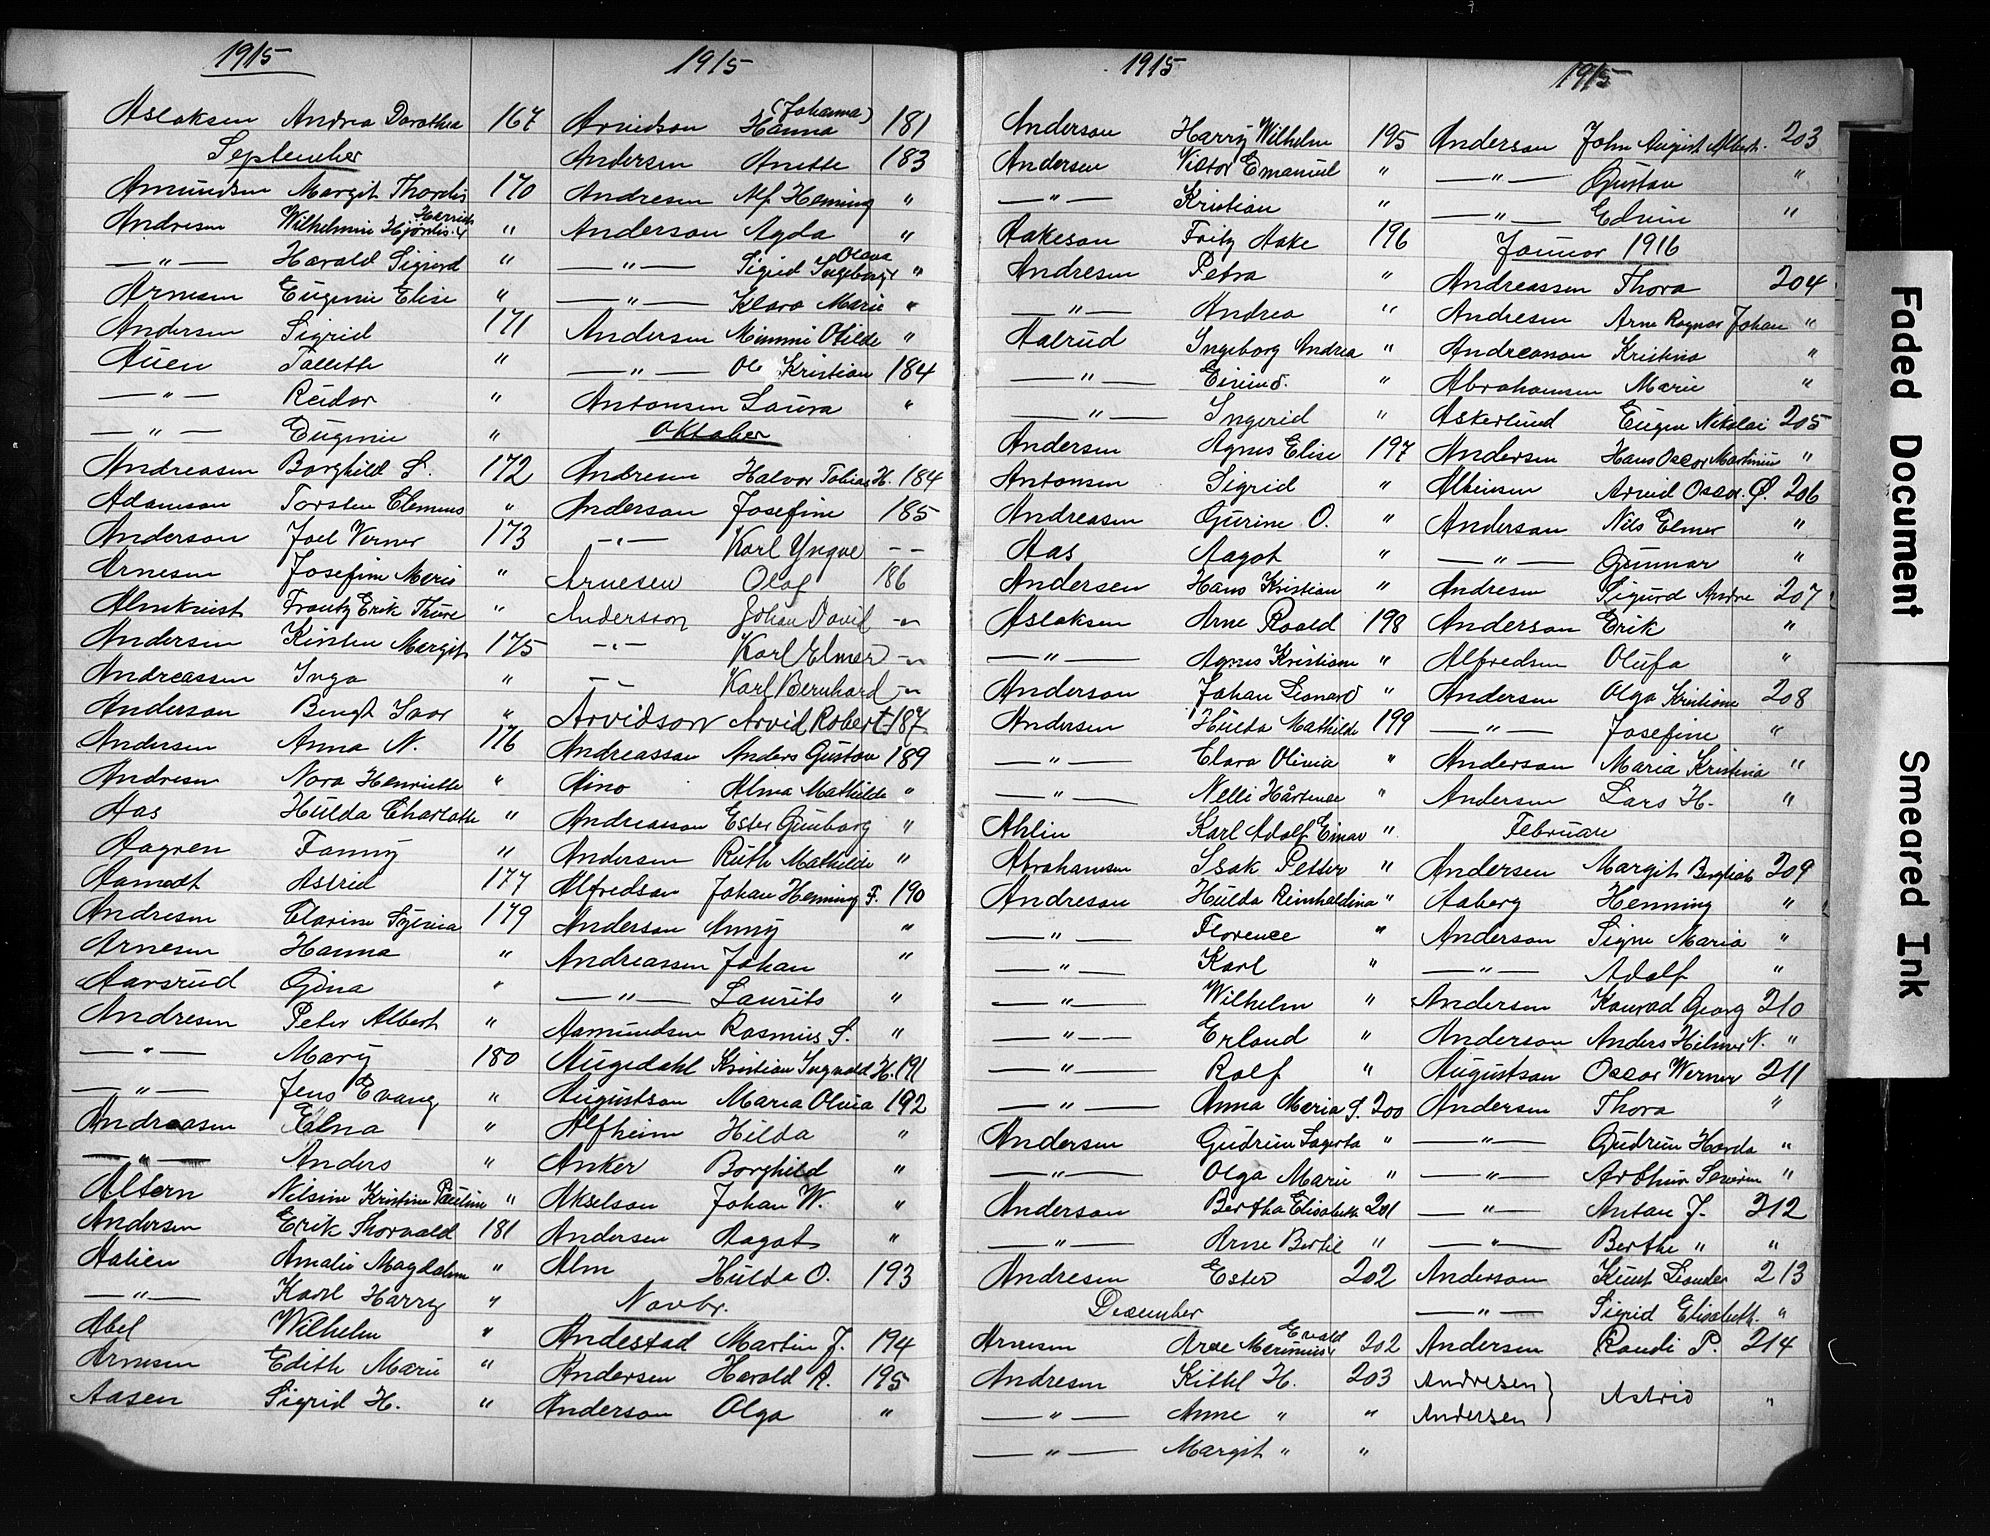 1915
Aslaksen Andrea Dorothea 167
September
Amundsen Margit Thordis 170
Andresen Wilhelmine Hjördis Henriette "
—"— Harald Sigurd "
Arnesen Eugenie Elise "
Andersen Sigrid 171
Auen Tallette "
—"— Reidar "
—"— Eugenie "
Andreasen Borghild S. 172
Adamson Torsten Clemens "
Anderson Joel Verner 173
Arnesen Josefine Marie "
Almkvist Frantz Erik Thure "
Andersen Kirsten Margit 175
Andreassen Inga "
Anderson Bengt Ivar "
Andersen Anna N. 176
Andresen Nora Henriette "
Aas Hulda Charlotte "
Aagren Fanny "
Aamodt Astrid 177
Andresen Clarine Sylvia 179
Arnesen Hanna "
Aarsrud Gina "
Andresen Peter Albert "
—"— Mary 180
—"— Jens Evang "
Andreasen Edna "
—"— Anders "
Altern Nilsine Kristine Pauline "
Andersen Erik Thorvald 181
Aalien Amalie Magdalene "
—"— Karl Harry "
Abel Wilhelm "
Arnesen Edith Marie "
Aasen Sigrid H. "
1915
Arvidson Hanna (Johanna) 181
Andersen Anette 183
Andresen Alf Henning "
Anderson Agda "
—"— Sigrid Ingeborg Olava "
—"— Klara Marie "
Andersen Mimmi Otilde "
—"— Ole Kristian 184
Antonsen Laura "
Oktober
Andresen Halvor Tobias H. 184
Anderson Josefine 185
—"— Karl Yngve — —
Arnesen Olaf 186
Andersson Johan David —"—
—"— Karl Elmer —"—
—"— Karl Bernhard —"—
Arvidson Arvid Robert 187
Andreasson Anders Gustav 189
Aino Alma Mathilde "
Andreasson Ester Gunborg "
Andersen Ruth Mathilde "
Alfredson Johan Henning F. 190
Anderson Anny "
Andreassen Johan "
—"— Laurits "
Aamundsen Rasmus S. "
Augedahl Kristian Ingvald H. 191
Augustson Maria Olivia 192
Alfheim Hilda "
Anker Borghild "
Akselson Johan W. "
Andersen Aagot "
Alm Hulda O. 193
Novbr.
Andestad Martin J. 194
Andersen Harald A. 195
Anderson Olga "
1915
Anderson Harry Wilhelm 195
Andersen Victor Emanuel "
—"— Kristian "
Aakeson Fritz Aake 196
Andresen Petra "
—"— Andrea "
Aalrud Ingeborg Andrea "
—"— Eivind. "
—"— Ingerid "
Andersen Agnes Elise 197
Antonsen Sigrid "
Andreasen Gurine O. "
Aas Aagot "
Andersen Hans Kristian "
Aslaksen Arne Roald 198
—"— Agnes Kristiane "
Anderson Johan Leonard "
Andersen Hulda Mathilde 199
—"— Clara Olivia "
—"— Nelli Hårtense "
Ahlin Karl Adolf Einar "
Abrahamsen Isak Petter "
Andreson Hulda Reinholdina "
—"— Florence "
—"— Karl "
—"— Wilhelm "
—"— Erland "
—"— Rolf "
—"— Anna Maria S. 200
Andersen Gudrun Lagerta "
—"— Olga Marie "
Anderson Bertha Elisabeth 201
—"— Arne Bertil "
Andresen Ester 202
December
Arnesen Arne Marinius Evald 202
Andresen Kittel H. 203
—"— Anne " "
—"— Margit " "
1915
Anderson John August Albert. 203
—"— Gustav "
—"— Edvin "
Januar 1916
Andreassen Thora 204
Andresen Arne Ragnar Johan "
Andreason Kristina "
Abrahamsen Marie "
Askerlund Eugen Nikolai 205
Andersen Hans Oscar Martinius "
Albinsen Arvid Oscar. Ø. 206
Anderson Nils Elmer "
—"— Gunnar "
Andresen Sigurd Andre 207
Anderson Erik "
Alfredsen Olufa "
Andersen Olga Kristiane 208
—"— Josefine "
Anderson Maria Kristina "
Andersen Lars H. "
Februar
Andersen Margit Bergliot 209
Aaberg Henning "
Anderson Signe Maria "
—"— Adolf "
Andersen Konrad Georg 210
Anderson Anders Hilmer N. "
Augustson Oscar Werner 211
Andersen Thora "
—"— Gudrun Harda "
—"— Arthur Severin "
—"— Anton J. 212
—"— Berthe " "
Anderson Knut Leander 213
—"— Sigrid Elisabeth. "
Andersen Randi P. 214
Andresen }
Andersen } Astrid "
Faded Document
Smeared Ink